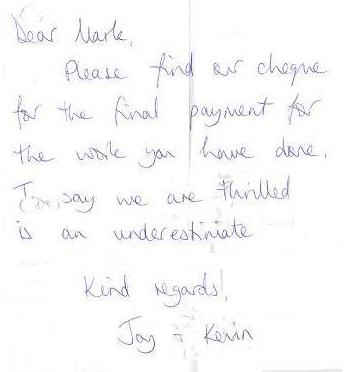 Dear Mark,
Please find our cheque
for the final payment for
the work you have done.
To say we are thrilled
is an underestimate
Kind regards,
Jay + Kevin